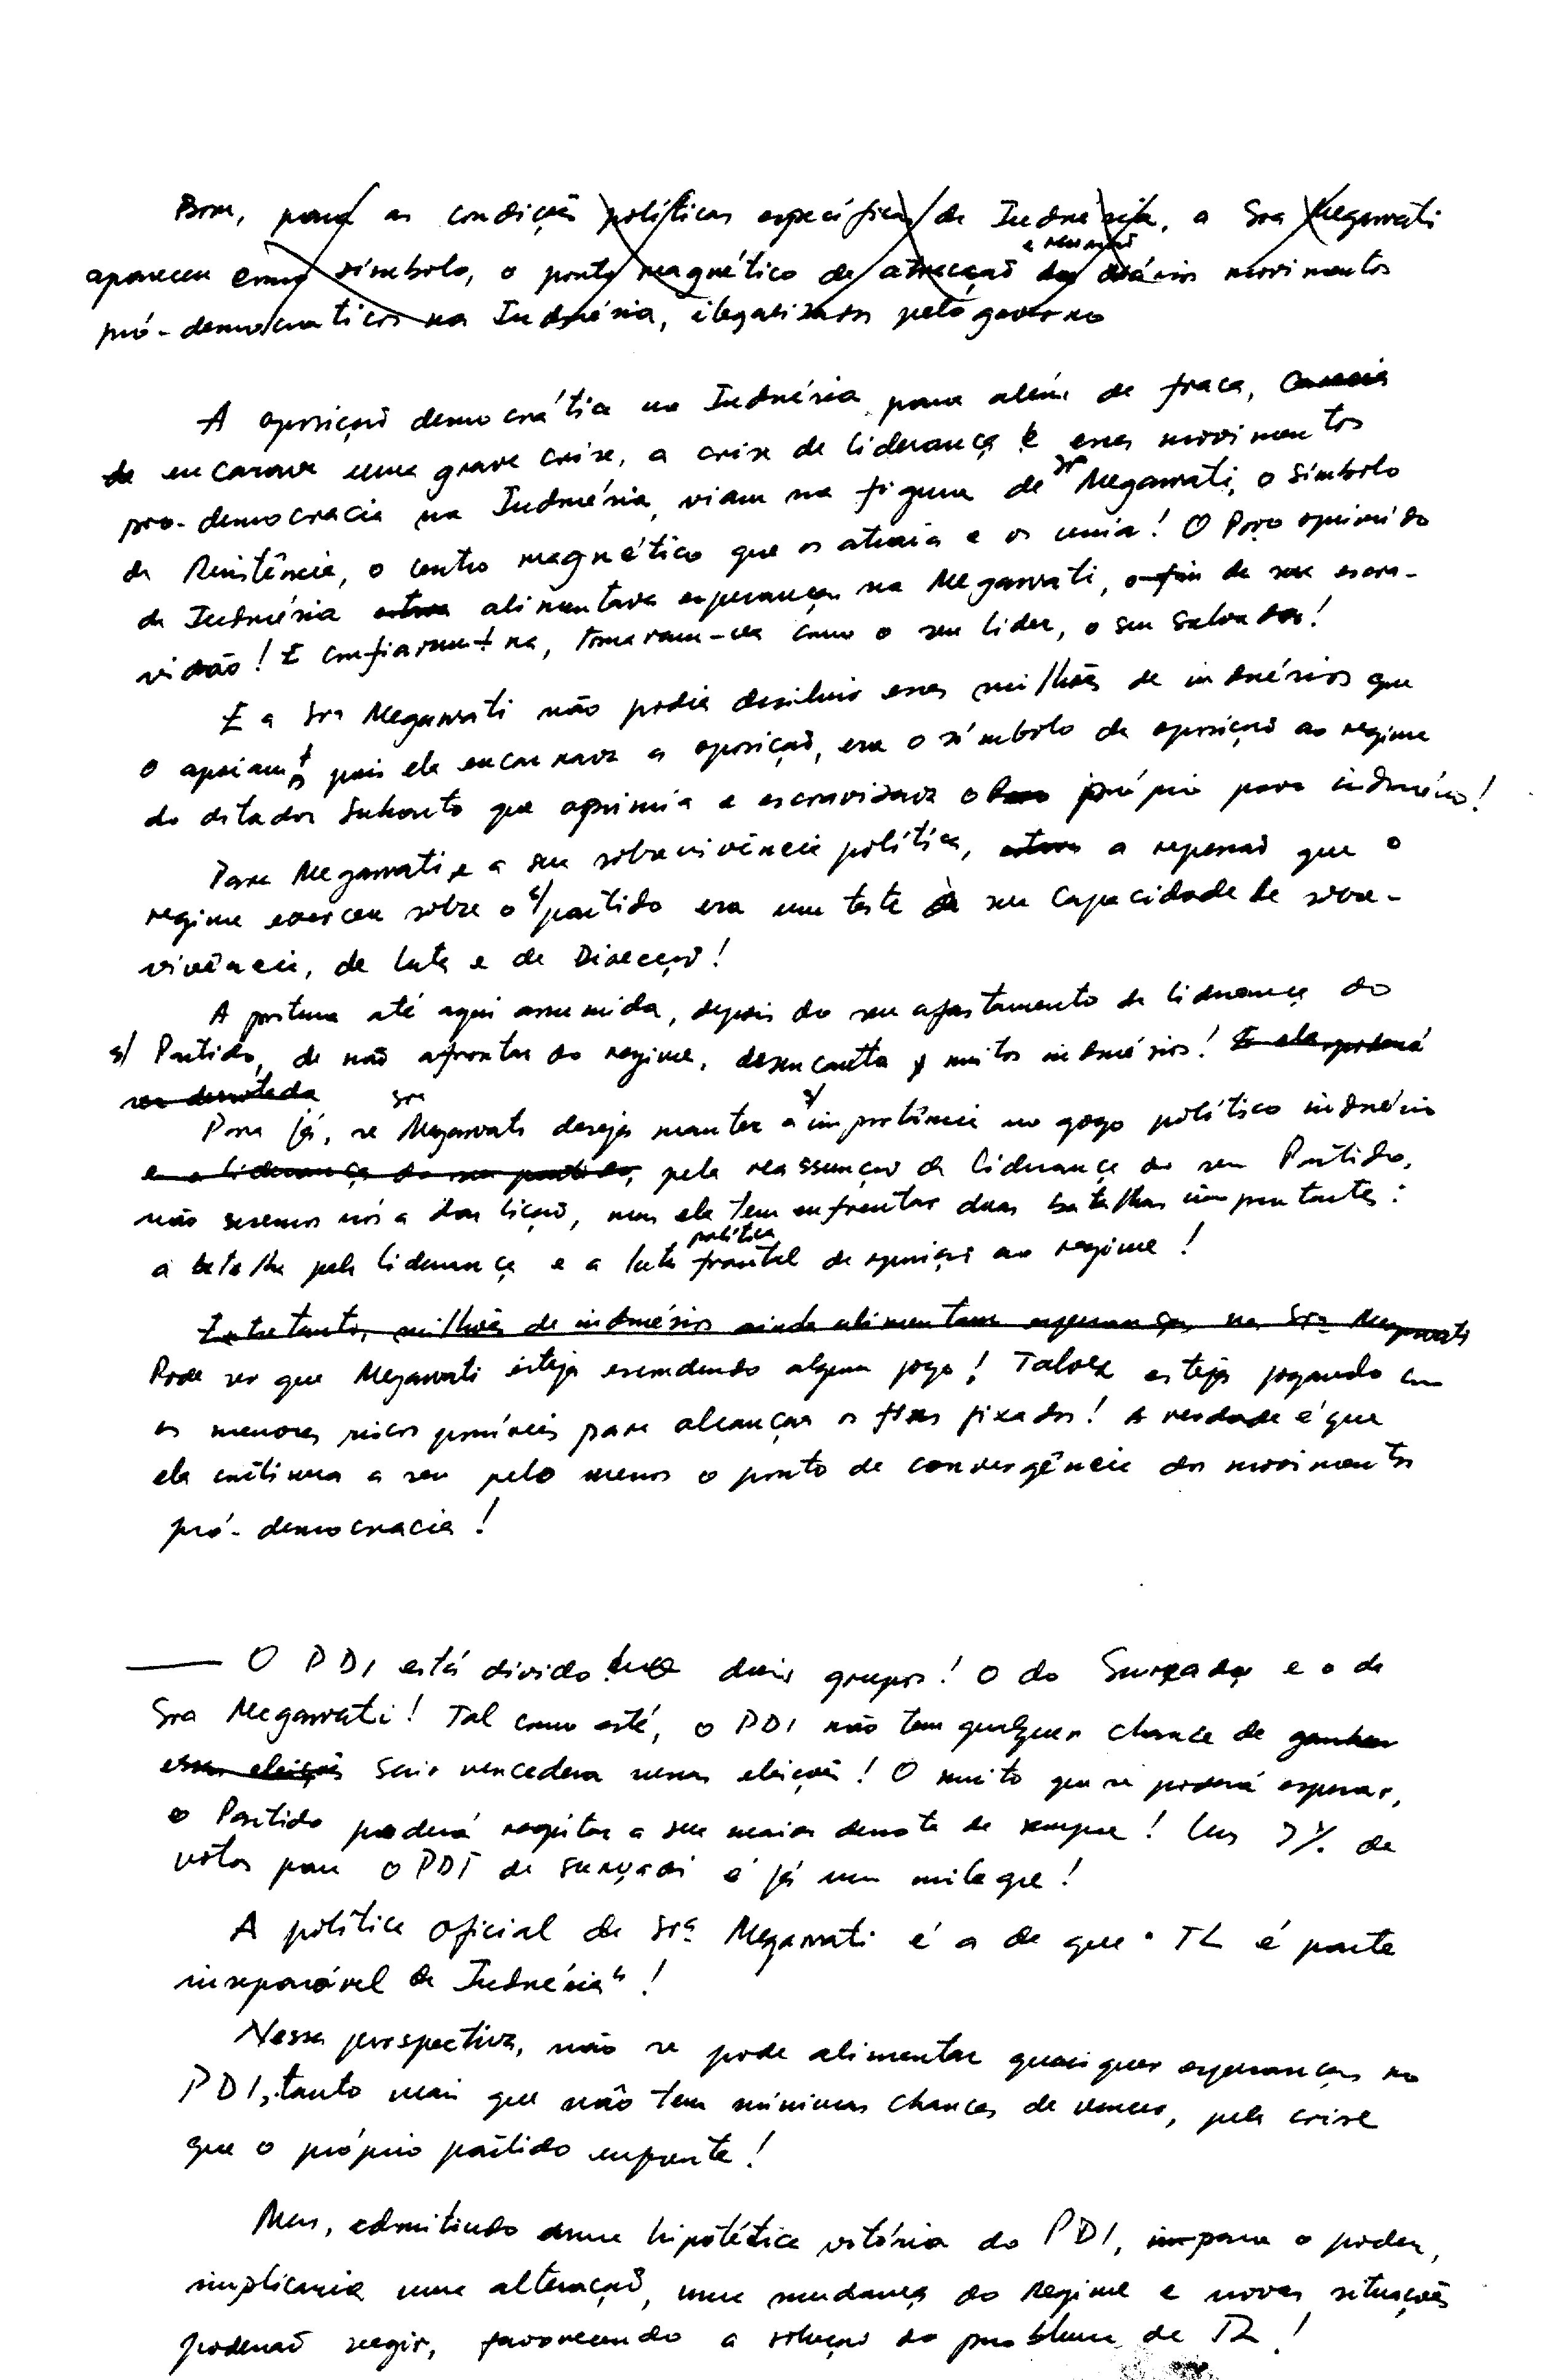 Bom, para as condições políticas específicas da Indonésia, a Sra Megawati
apareceu como símbolo, o ponto magnético de atracção e reunião dos vários movimentos
pró-democráticos na Indonésia, ilegalizados pelo governo
A oposição democrática na Indonésia, para além de fraca,
encarava uma grave crise, a crise de liderança e esses movimentos
pro-democracia na Indonésia, viam na figura de Sra Megawati, o símbolo
da Resistência, o centro magnético que os atraía e os unia! O Povo oprimido
da Indonésia alimentava esperanças na Megawati, o fim de sua escra-
vidão! E confiaram-na, tomaram-na como o seu líder, o seu Salvador!
E a Sra Megawati não podia desiludir esses milhões de indonésios que
o apoiam, pois ela encarnava a oposição, era o símbolo da oposição ao regime
do ditador Suharto que oprimia e escravizava o próprio povo indonésio!
Para Megawati e a sua sobrevivência política, a repressão que o
regime exerceu sobre o s/ partido era um teste à sua capacidade de sobre-
vivência, de luta e de Direcção!
A postura até aqui assumida, depois do seu afastamento da liderança do
s/ Partido, de não afrontar do regime, desencanta muitos indonésios! E ela poderá
ser derrotada
Para já, se Sra Megawati deseja manter a s/ importância no gogo político indonésio
e a liderança do seu partido, pela reassunção da liderança do seu Partido,
não seremos nós a dar lição, mas ela tem enfrentar duas batalhas importantes:
a batalha pela liderança e a luta política frontal de oposição ao regime!
Entretanto, milhões de indonésios ainda alimentam esperanças na Sra Megawati
Pode ser que Megawati esteja escondendo algum jogo! Talvez esteja jogando com
os menores riscos possíveis para alcançar os fins fixados! A verdade é que
ela continua a ser pelo menos o ponto de convergência dos movimentos
pró-democracia!
O PDI está divido em dois grupos! O do Suryadi e o da
Sra Megawati! Tal como está, o PDI não tem qualquer chance de ganhar
essas eleições sair vencedora nessas eleições! O muito que se poderá esperar,
o Partido poderá registar a sua maior derrota de sempre! Uns 7% de
votos para o PDI de Suryadi é já um milagre!
A política oficial da Srª Megawati é a de que "TL é parte
inseparável da Indonésia"!
Nessa perspectiva, não se pode alimentar quaisquer esperanças no
PDI, tanto mais que não tem mínimas chances de vencer, pela crise
que o próprio partido enfrenta!
Mas, admitindo uma hipotética vitória do PDI, para o poder,
implicaria uma alteração, uma mudança do Regime e novas situações
poderão surgir, favorecendo a solução do problema de TL!